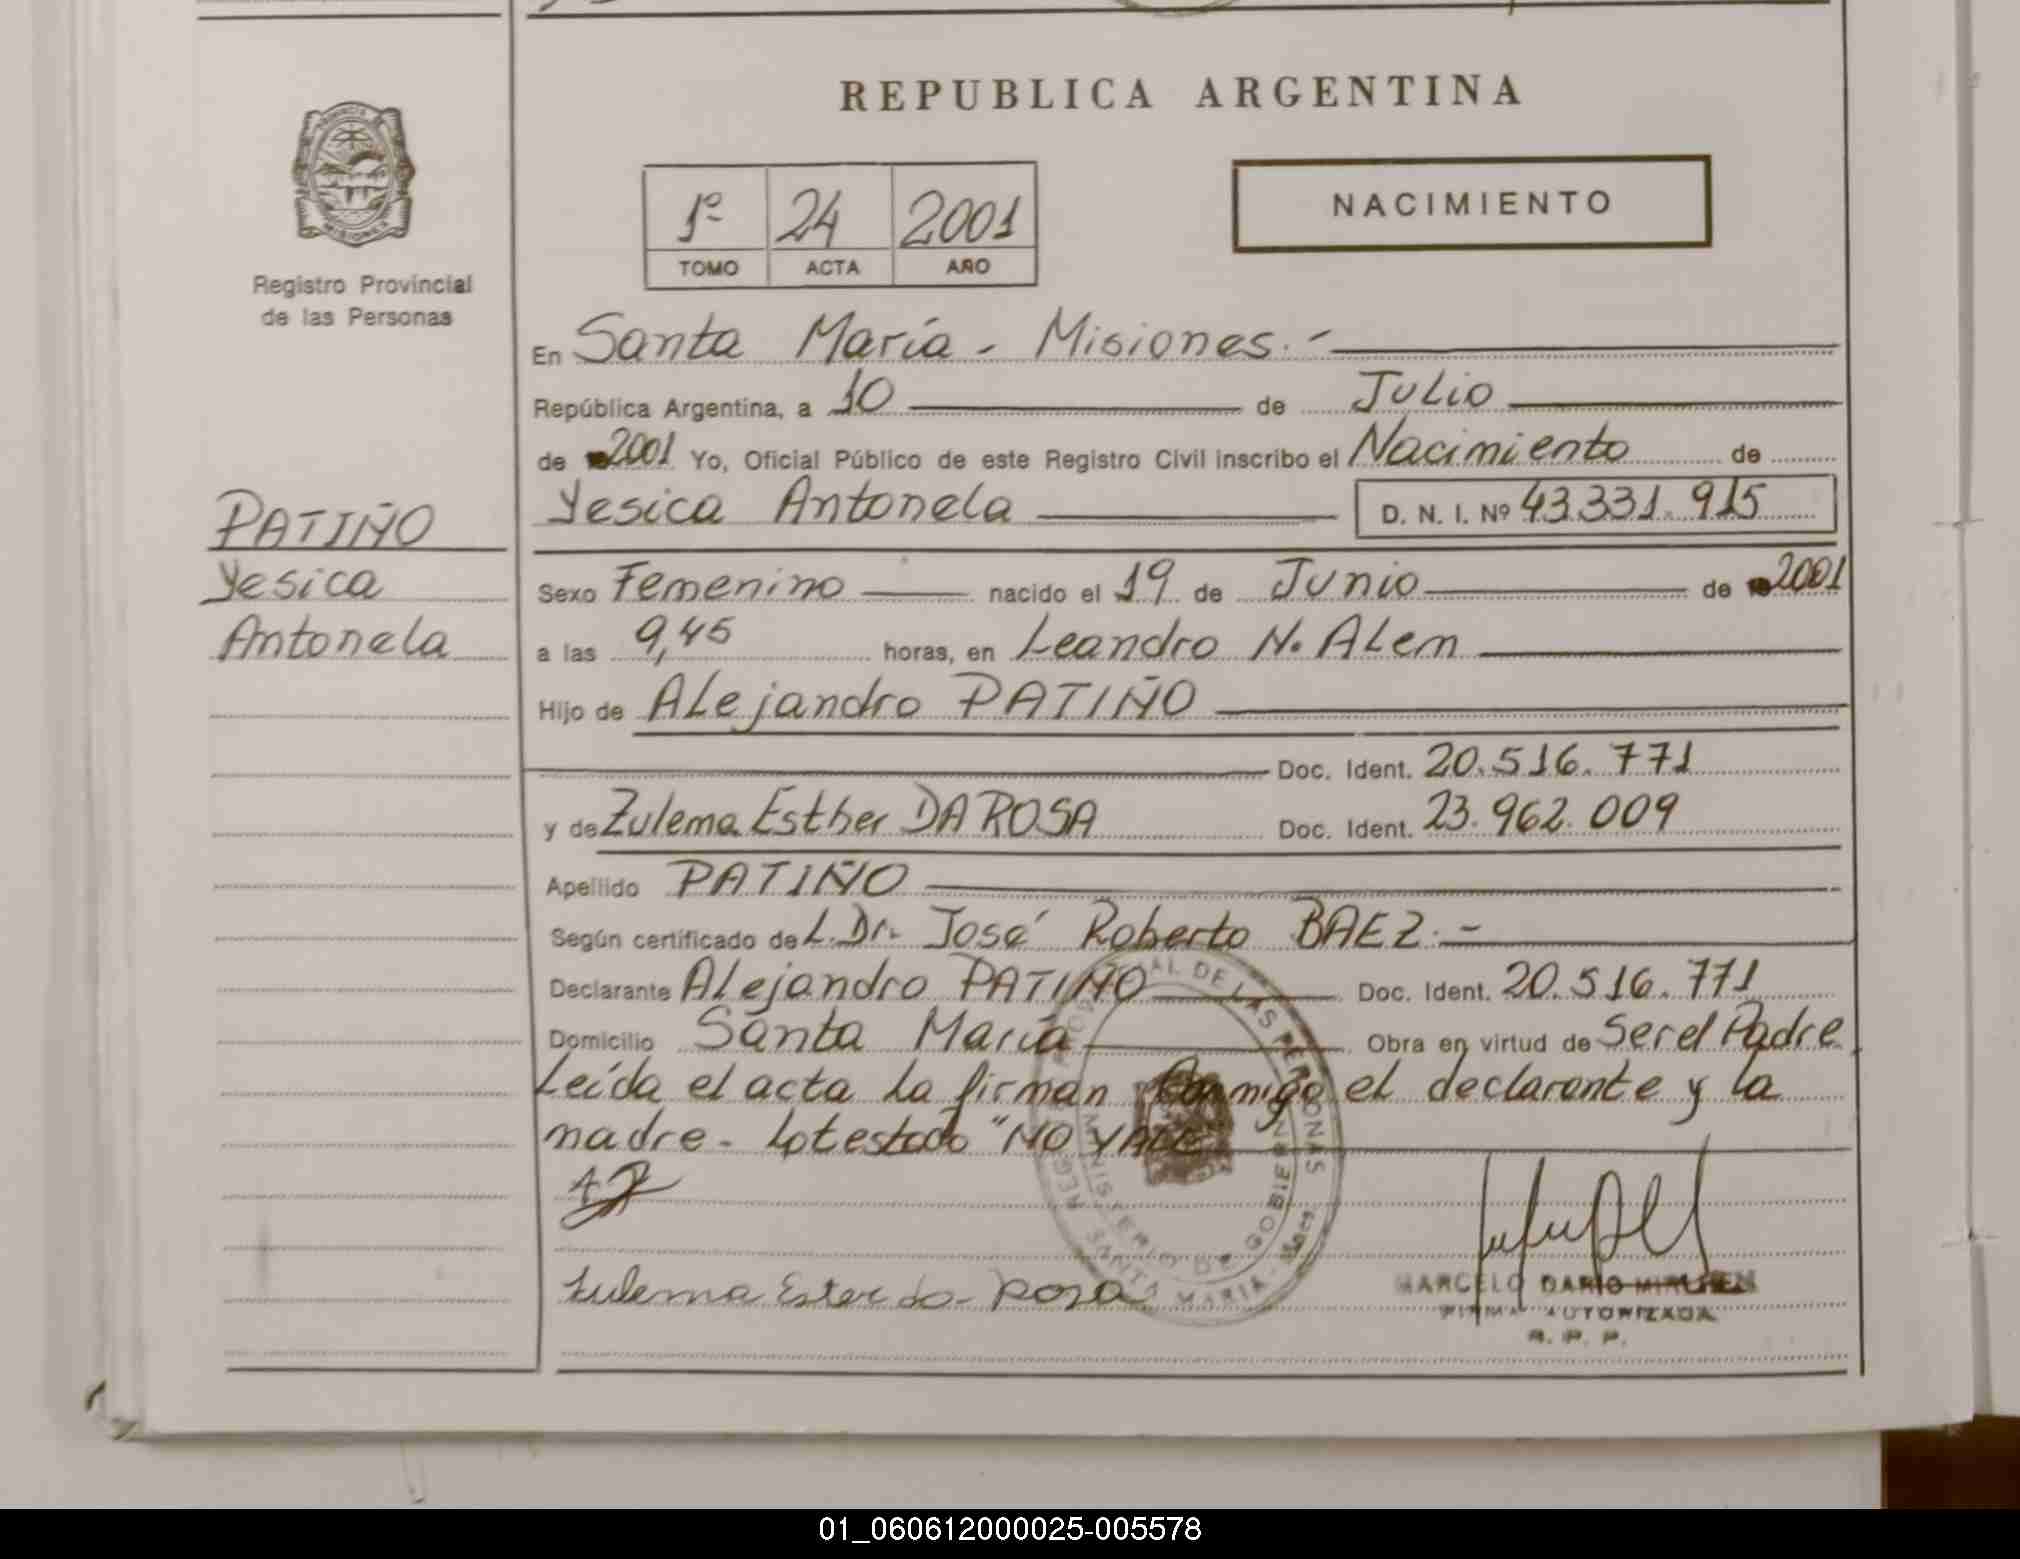 REPUBLICA ARGENTINA
PROVINCIA
MISIONES
Registro Provincial
de las Personas
1º 24 2001
TOMO ACTA AÑO
NACIMIENTO
En Santa María - Misiones.-
República Argentina, a 10 de Julio
de 2001 Yo, Oficial Público de este Registro Civil inscribo el Nacimiento de
Yesica Antonela D. N. I. Nº 43.331.915
PATIÑO
Yesica
Antonela
Sexo Femenino nacido el 19 de Junio de 2001
a las 9,45 horas, en Leandro N. Alem
Hijo de Alejandro PATIÑO
Doc. Ident. 20.516.771
y de Zulema Esther DA ROSA Doc. Ident. 23.962.009
Apellido PATIÑO
Según certificado de L. Dr. José Roberto BAEZ.-
Declarante Alejandro PATIÑO Doc. Ident. 20.516.771
Domicilio Santa María Obra en virtud de Ser el Padre
Leída el acta la firman conmigo el declarante y la
madre - Lo testado "NO VALE
REG. PROVINCIAL DE LAS PERSONAS
MINISTERIO DE GOBIERNO
SANTA MARIA - Mnes.
Zulema Ester da Rosa
MARCELO DARIO
FIRMA AUTORIZADA
R. P. P.
01_060612000025-005578